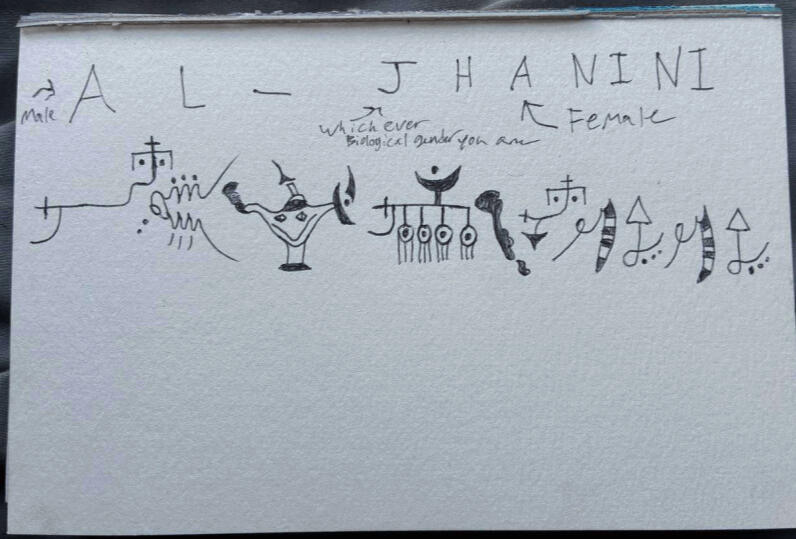 AL- JHANINI
Male
Which ever
Biological gender you are
Female